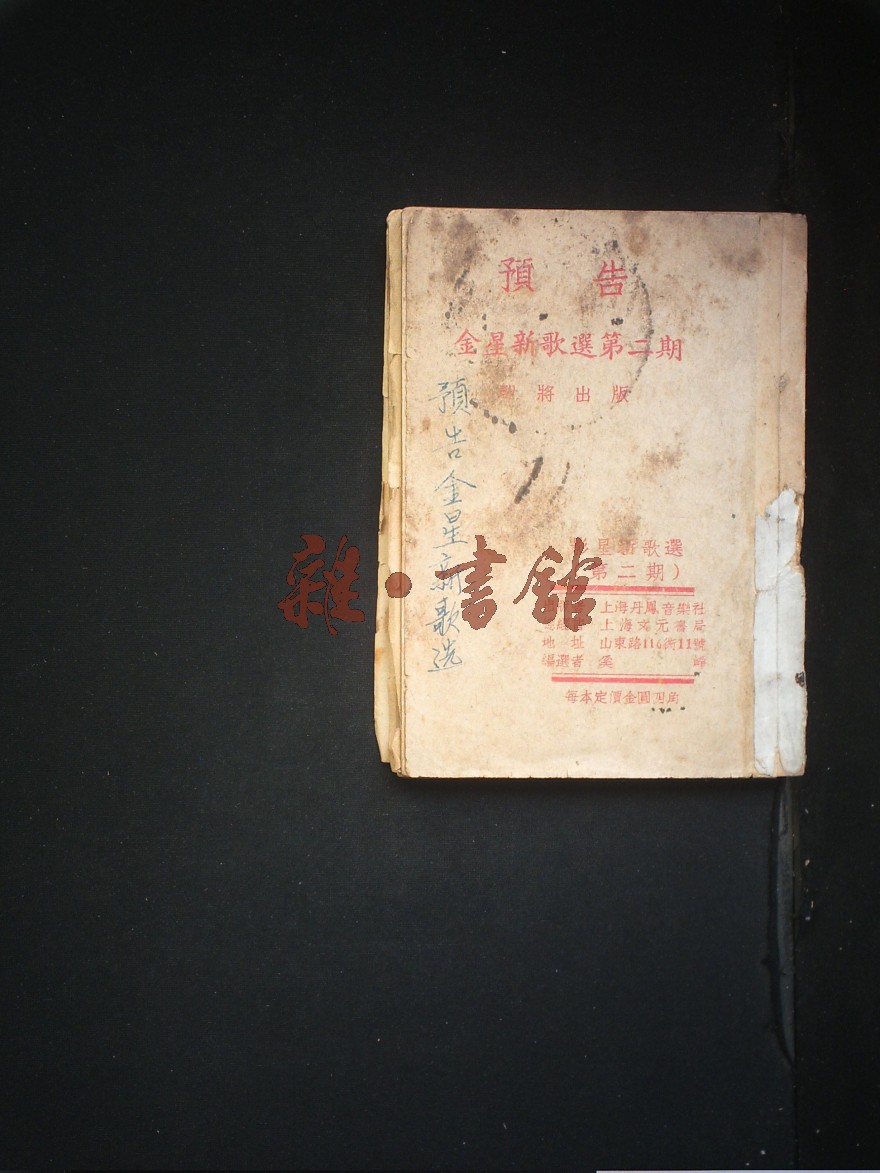 預告
金星新歌選第二期
將出版
預告金星新歌选
星新歌選
第二期）
上海丹鳳音樂社
上海文元書局
地址 山東路116衖11號
編選者 奚
每本定價金圓四角
雜·書館